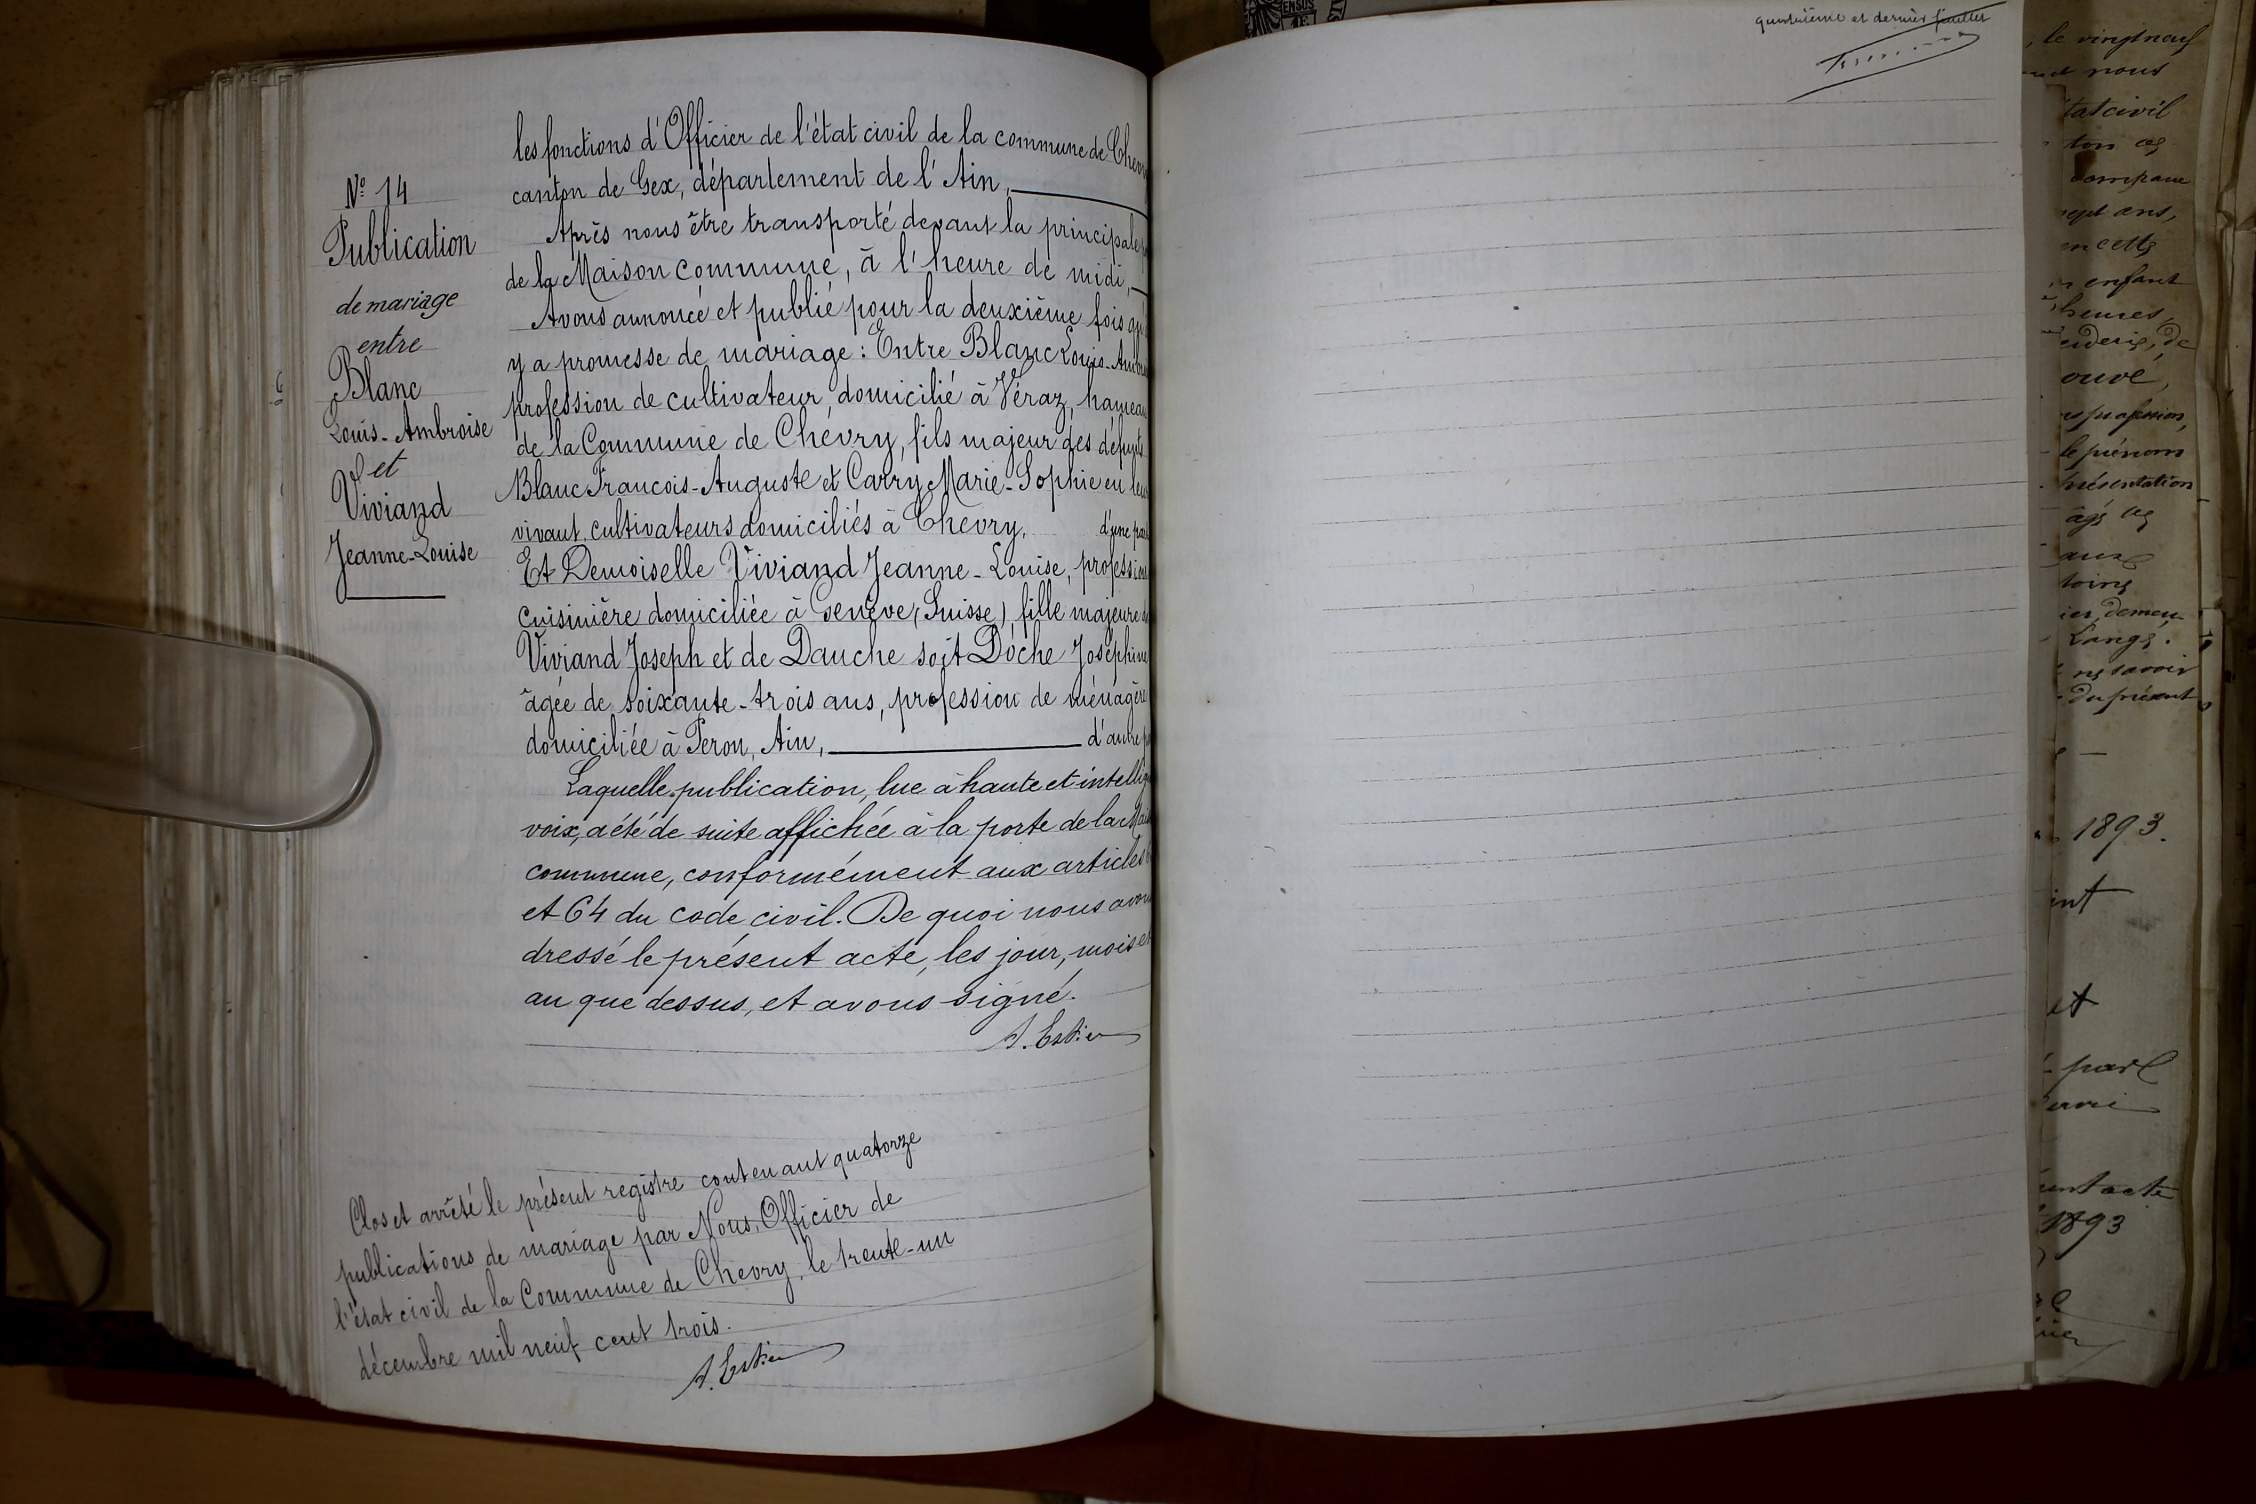 N° 14
Publication
de mariage
entre
Blanc
Louis-Ambroise
et
Viviand
Jeanne-Louise
les fonctions d'Officier de l'état civil de la commune de
canton de Gex, département de l'Ain,
Après nous être transporté devant la principale
de la Maison commune, à l'heure de midi,
Avons annoncé et publié pour la deuxième fois
y a promesse de mariage : Entre Blanc Louis-
profession de cultivateur, domicilié à Véraz, hameau
de la Commune de Chevry, fils majeur des défunts
Blanc Francois-Auguste et Carry Marie-Sophie en leur
vivant cultivateurs domiciliés à Chevry, d'une part
Et Demoiselle Viviand Jeanne-Louise, profession
cuisinière domiciliée à Genève (Suisse) fille majeure de
Viviand Joseph et de Dauche soit Dôche Joséphine
âgée de soixante-trois ans, profession de ménagère
domiciliée à Peron, Ain, d'autre
Laquelle publication, lue à haute et
voix, a été de suite affichée à la porte de la
commune, conformément aux articles
et 64 du code civil. De quoi nous avons
dressé le présent acte, les jour, mois et
an que dessus, et avons signé.
Clos et arrêté le présent registre contenant quatorze
publications de mariage par Nous, Officier de
l'état civil de la Commune de Chevry, le trente-un
décembre mil neuf cent trois.
et dernier feuillet
le vingt neuf
nous
état civil
ans,
en cette
enfant
heures,
de
profession,
le prénom
présentation
demeu
savoir
du présent
1893.
et
part
acte
1893